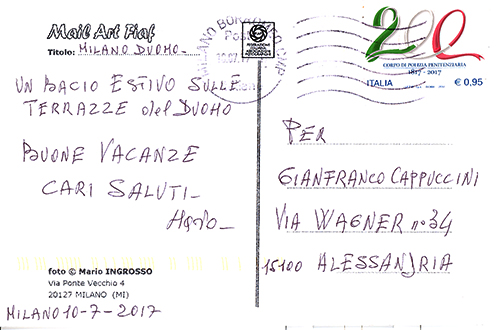 Mail Art Fiaf
Titolo: MILANO DUOMO-
UN BACIO ESTIVO SULLE
TERRAZZE del DUOMO
BUONE VACANZE
CARI SALUTI-
foto © Mario INGROSSO
Via Ponte Vecchio 4
20127 MILANO (MI)
MILANO 10-7-2017
200
CORPO DI POLIZIA PENITENZIARIA
1817 - 2017
ITALIA € 0,95
PER
GIANFRANCO CAPPUCCINI
VIA WAGNER n° 34
15100 ALESSANDRIA
MILANO